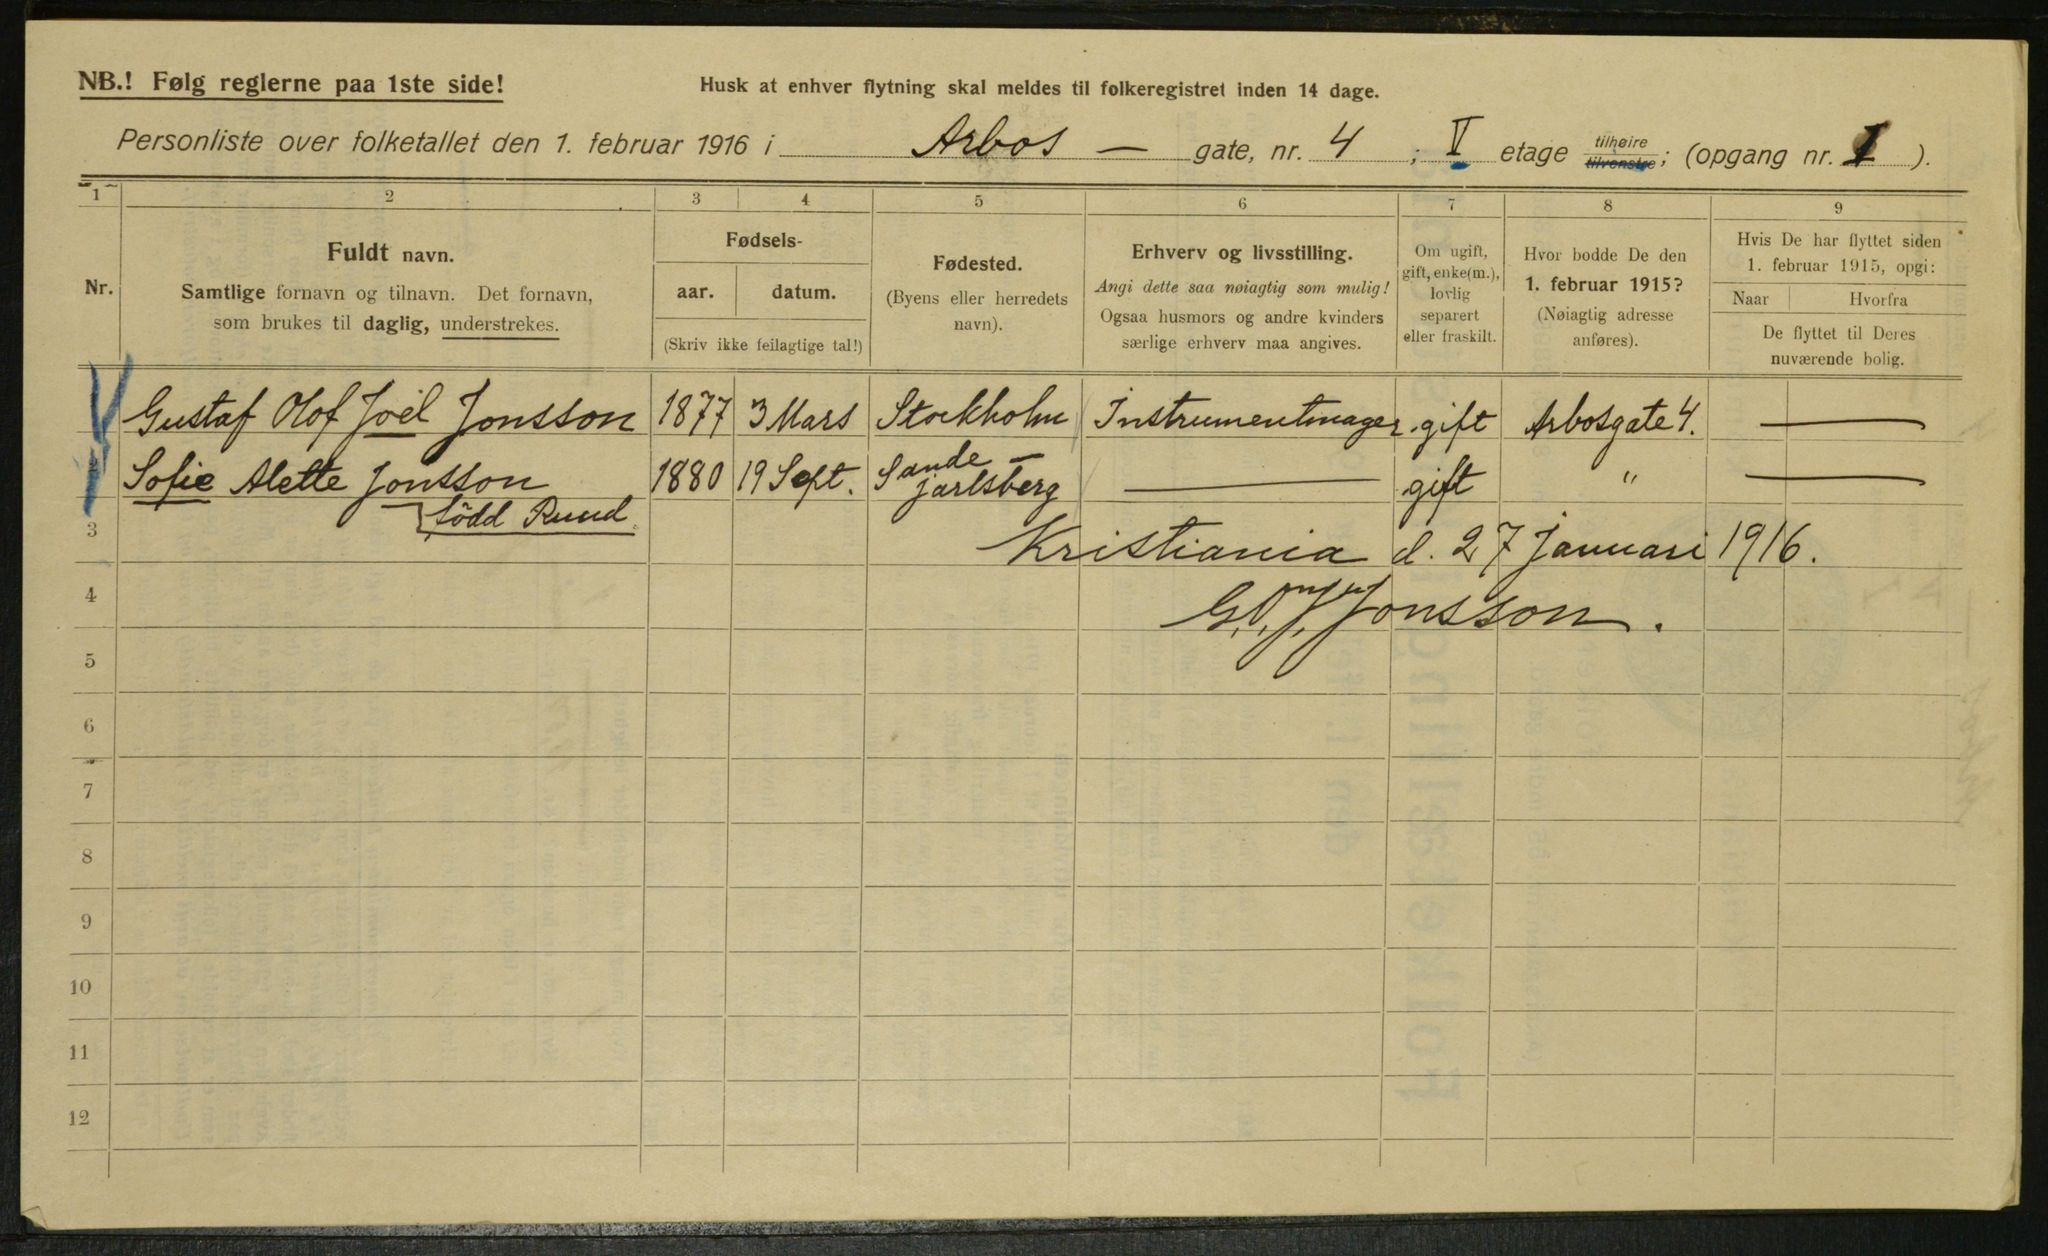 NB.! Følg reglerne paa 1ste side!
Husk at enhver flytning skal meldes til folkeregistret inden 14 dage.
Personliste over folketallet den 1. februar 1916 i Arbos — gate, nr. 4 ; V etage tilhøire tilvenstre; (opgang nr. 1 ).
1 2 3 4 5 6 7 8 9
Nr.
Fuldt navn.
Samtlige fornavn og tilnavn. Det fornavn,
som brukes til daglig, understrekes.
Fødsels-
aar. datum.
(Skriv ikke feilagtige tal!)
Fødested.
(Byens eller herredets
navn).
Erhverv og livsstilling.
Angi dette saa nøiagtig som mulig!
Ogsaa husmors og andre kvinders
særlige erhverv maa angives.
Om ugift,
gift, enke(m.),
lovlig
separert
eller fraskilt.
Hvor bodde De den
1. februar 1915?
(Nøiagtig adresse
anføres).
Hvis De har flyttet siden
1. februar 1915, opgi:
Naar Hvorfra
De flyttet til Deres
nuværende bolig.
Gustaf Olof Joël Jonsson 1877 3 Mars Stockholm Instrumentmager gift Arbosgate 4. —
2 Sofie Alette Jonsson 1880 19 Sept. Sande — Jarlsberg — gift " —
född Ruud.
3 Kristiania d. 27 Januari 1916.
4 G. O. J. Jonsson.
5
6
7
8
9
10
11
12